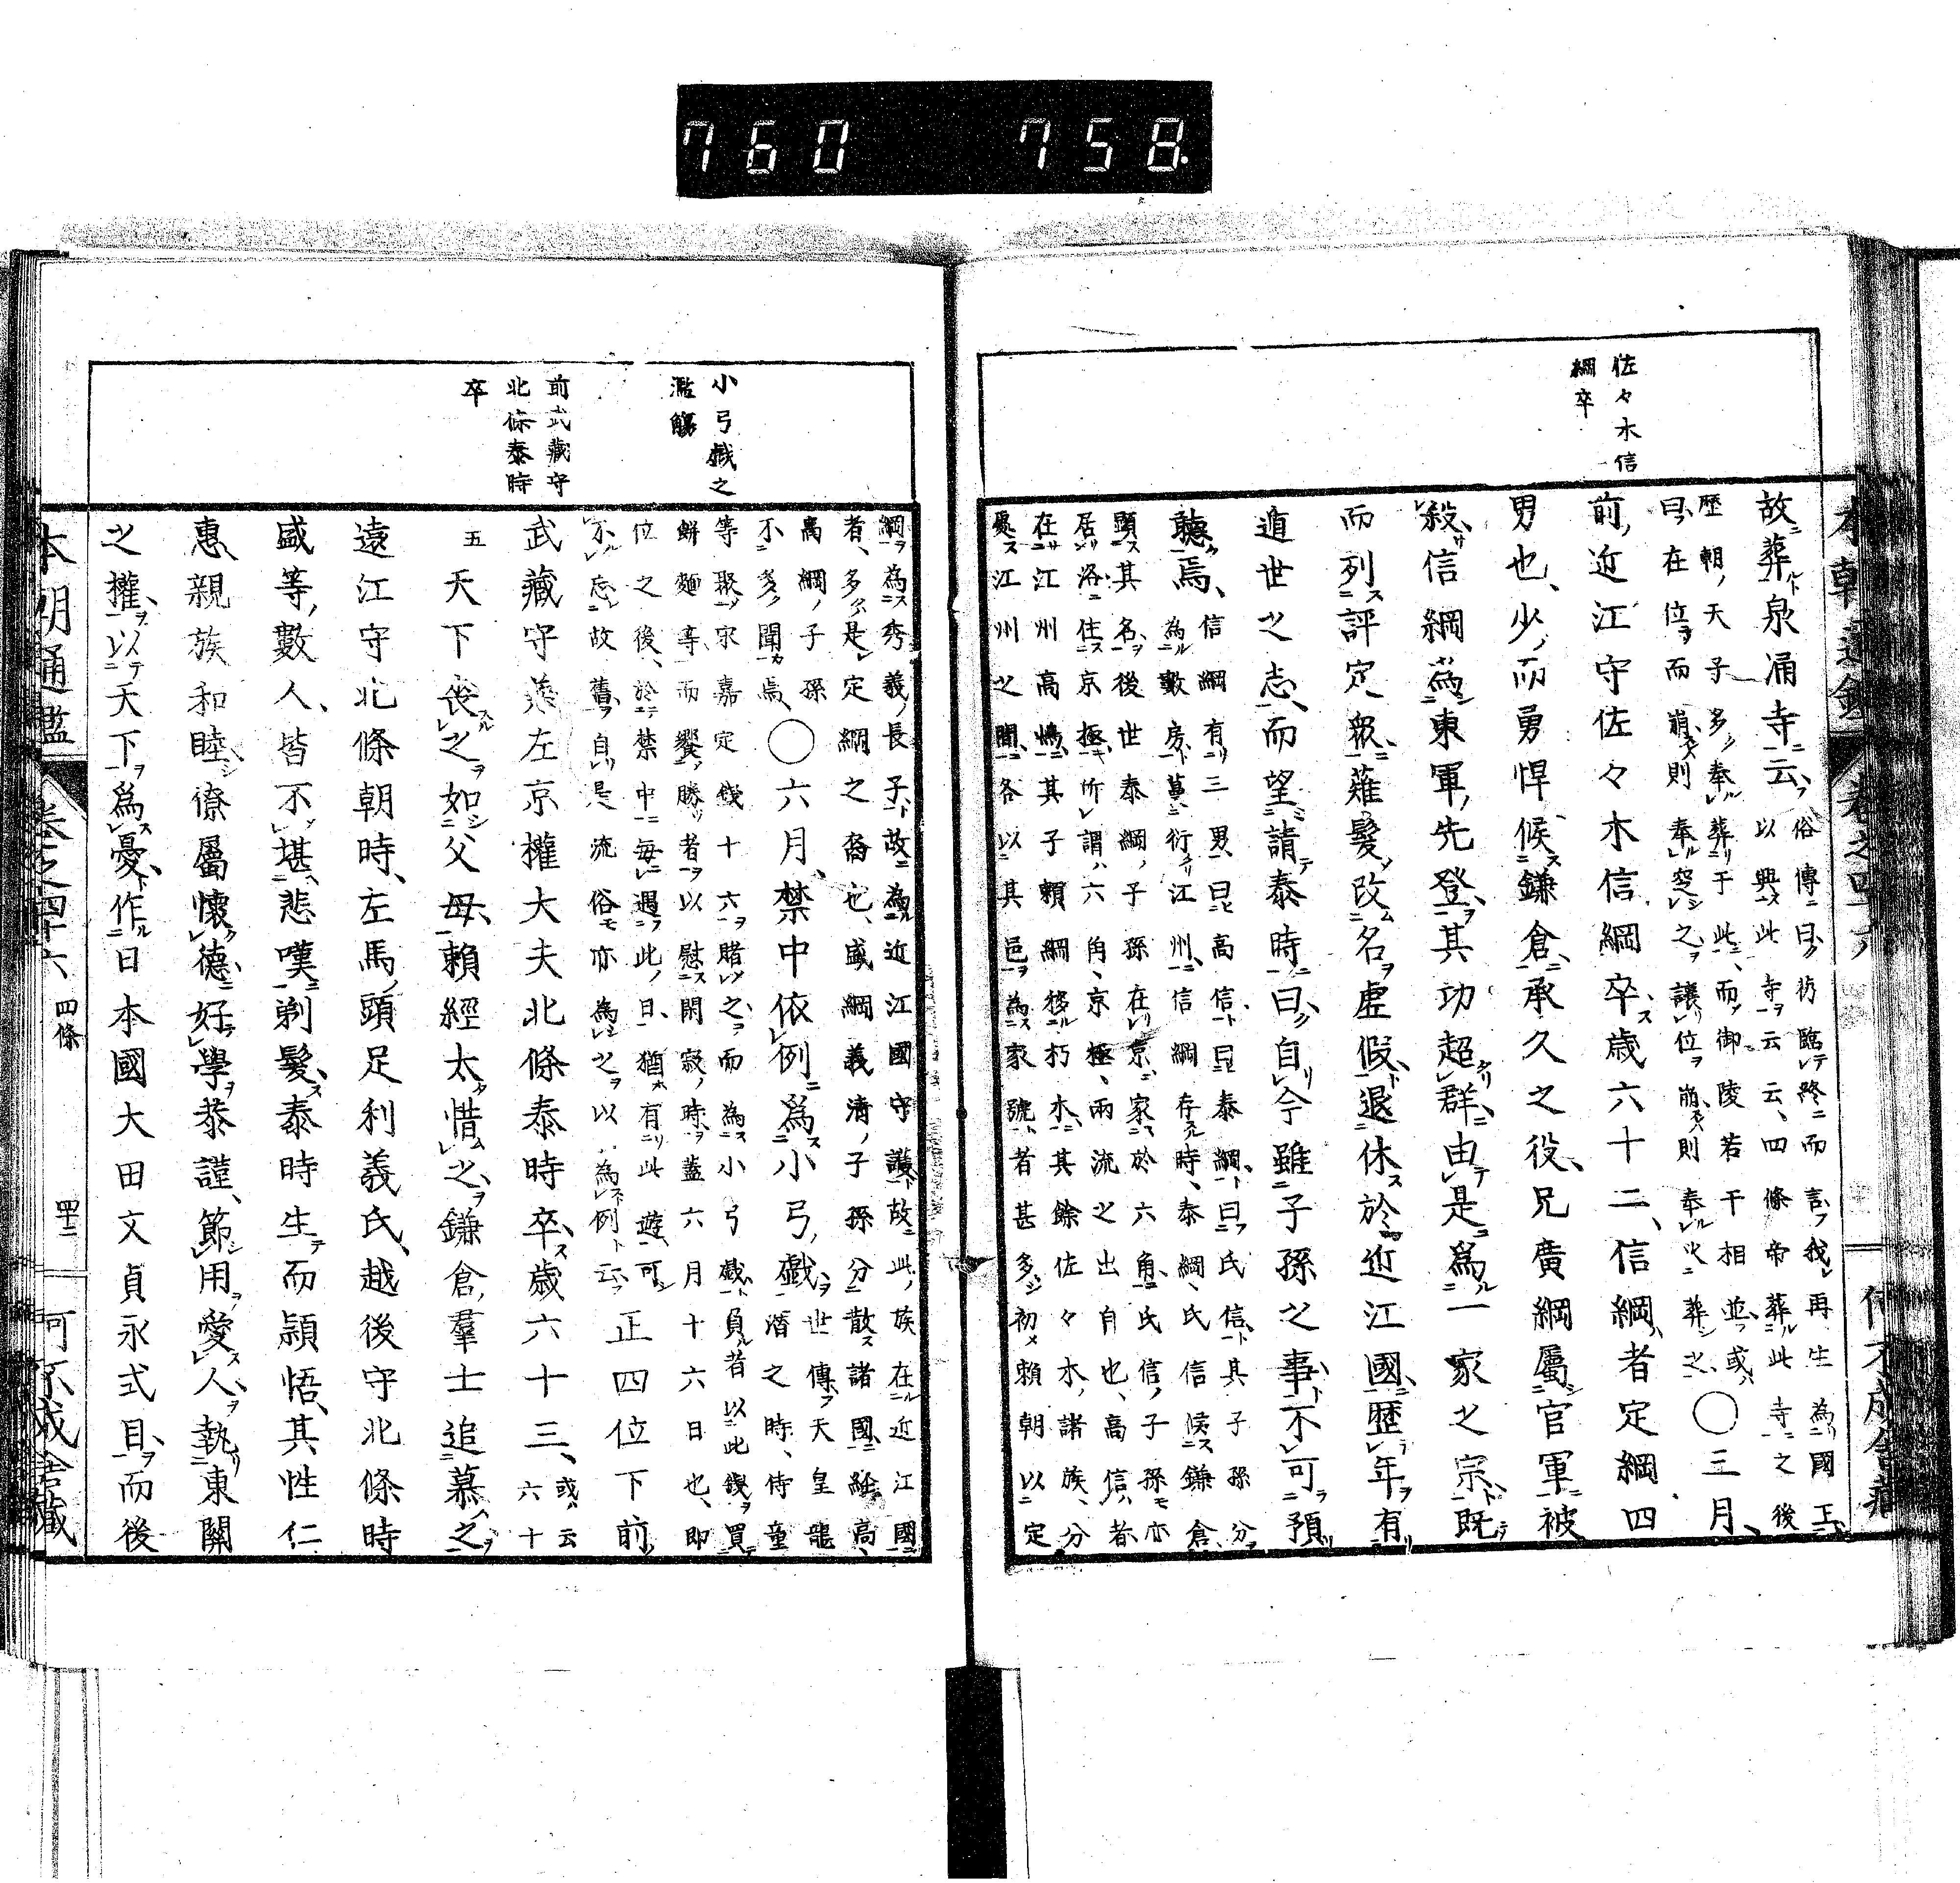 760 758.
佐々木信
綱卒
故葬泉涌寺云
俗傳曰彷臨終而言我再生為國王
以興此寺云云四條帝葬此寺之後
歷朝天子多奉葬于此而御陵若干相並或
曰在位而崩則奉窆之讓位崩則奉火葬之
〇三月
前近江守佐々木信綱卒歳六十二信綱者定綱四
男也少而勇悍候鎌倉承久之役兄廣綱屬官軍被
殺信綱為東軍先登其功超群由是為一家之宗既
而列評定衆薙髮改名虛假退休於近江國歴年有
遁世之志而望請泰時曰自今雖子孫之事不可預
聽焉
信綱有三男曰高信曰泰綱曰氏信其子孫分
為數房蔓衍江州信綱存時泰綱氏信候鎌倉
顯其名後世泰綱子孫在京家於六角氏信子孫亦
居洛住京極所謂六角京極兩流之出自也高信者
在江州高嶋其子賴綱移朽木其餘佐々木諸族分
處江州之間各以其邑為家號者甚多初賴朝以定
綱為秀義長子故為近江國守護故此族在近江國
者多是定綱之裔也盛綱義清子孫分散諸國雖高
綱子孫
不多聞焉
〇六月禁中依例為小弓戲
世傳天皇龍
潛之時侍童
等聚宋嘉定錢十六賭之而為小弓戲負者以此錢買
餅麵等而饗勝者以慰閑寂時蓋六月十六日也即
位之後於禁中每遇此日猶有此遊可
不忘故舊自是流俗亦為之以為例云
正四位下前
武藏守兼左京權大夫北條泰時卒歳六十三
或云
六十
五
天下喪之如父母賴經太惜之鎌倉羣士追慕之
遠江守北條朝時左馬頭足利義氏越後守北條時
盛等數人皆不堪悲嘆剃髮泰時生而穎悟其性仁
惠親族和睦僚屬懷德好學恭謹節用愛人執東關
之權以天下為憂作日本國大田文貞永式目而後
小弓戲之
濫觴
前武藏守
北條泰時
卒
本朝通鑑 卷之四十六 四條 四十二